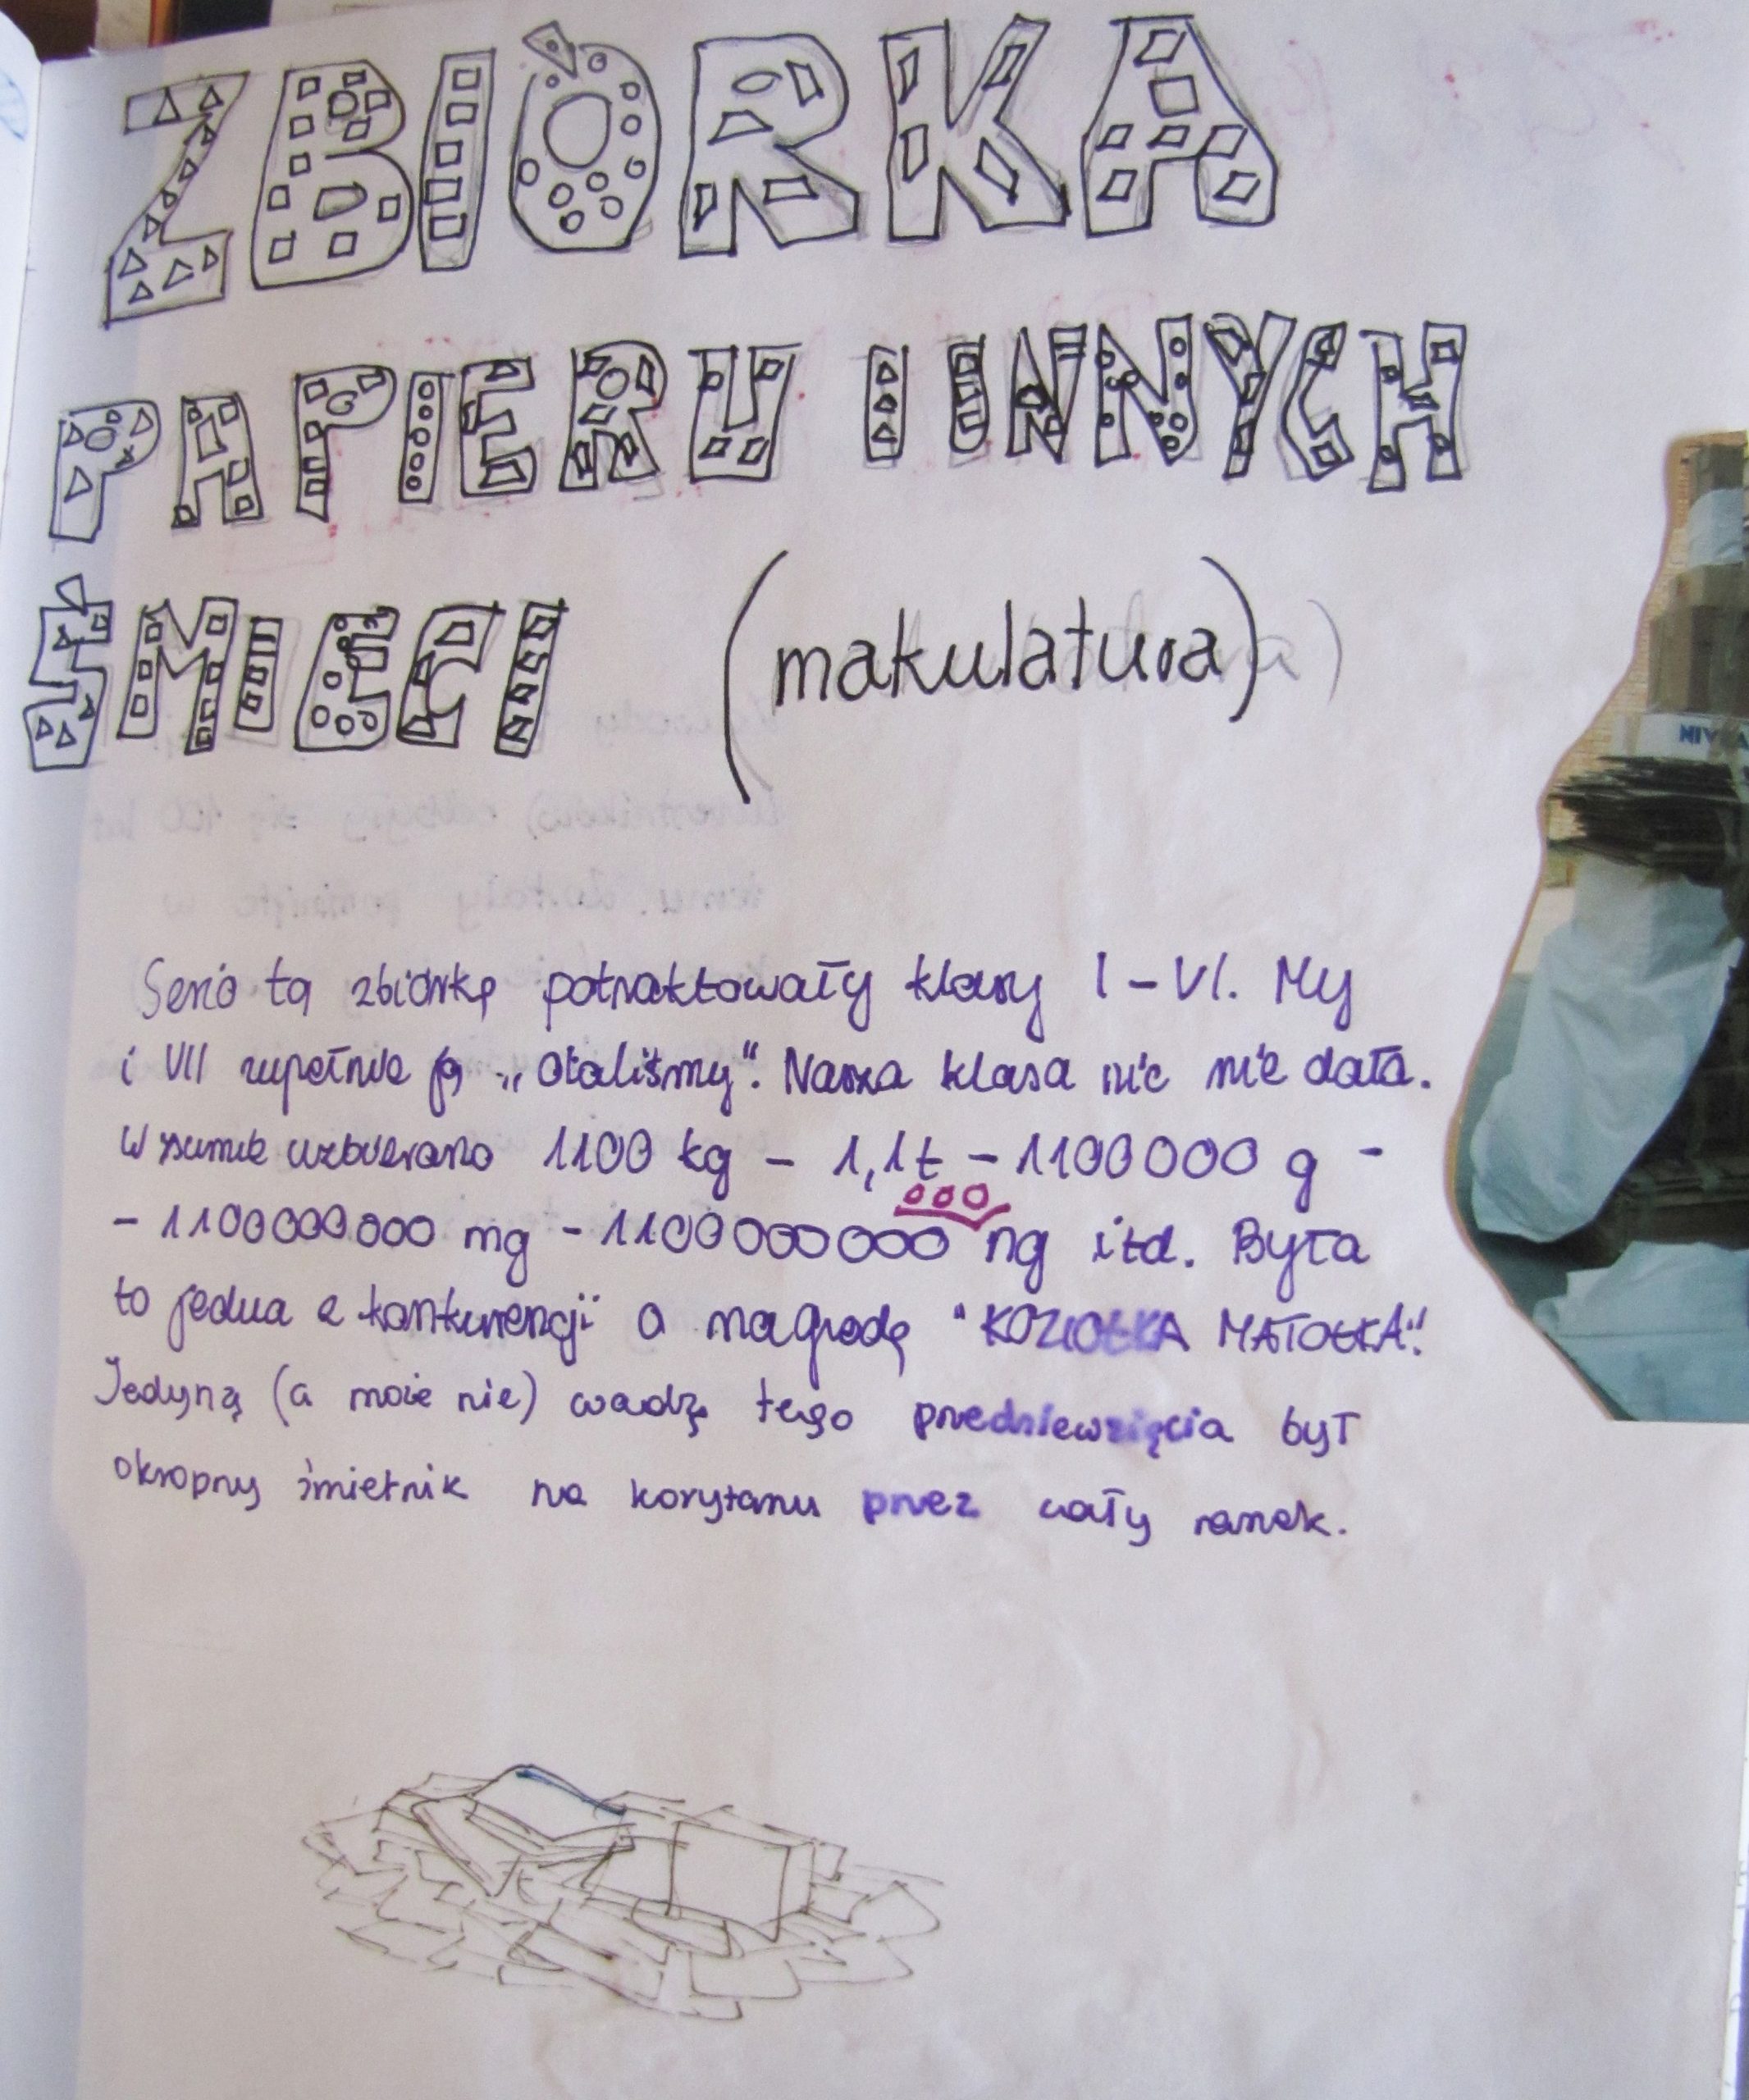 ZBIÓRKA
PAPIERU I INNYCH
ŚMIECI (makulatura)
Serio tą zbiórkę potraktowały klasy I - VI. My
i VII zupełnie ją „olaliśmy". Nasza klasa nic nie dała.
W sumie uzbierano 1100 kg - 1,1t - 1100000 g -
000
- 1100000000 mg - 1100000000 ng itd. Była
to jedna z konkurencji o nagrodę "KOZIOŁKA MATOŁKA".
Jedyną (a może nie) wadą tego przedsięwzięcia był
okropny śmietnik na korytarzu przez cały ranek.
NIVEA